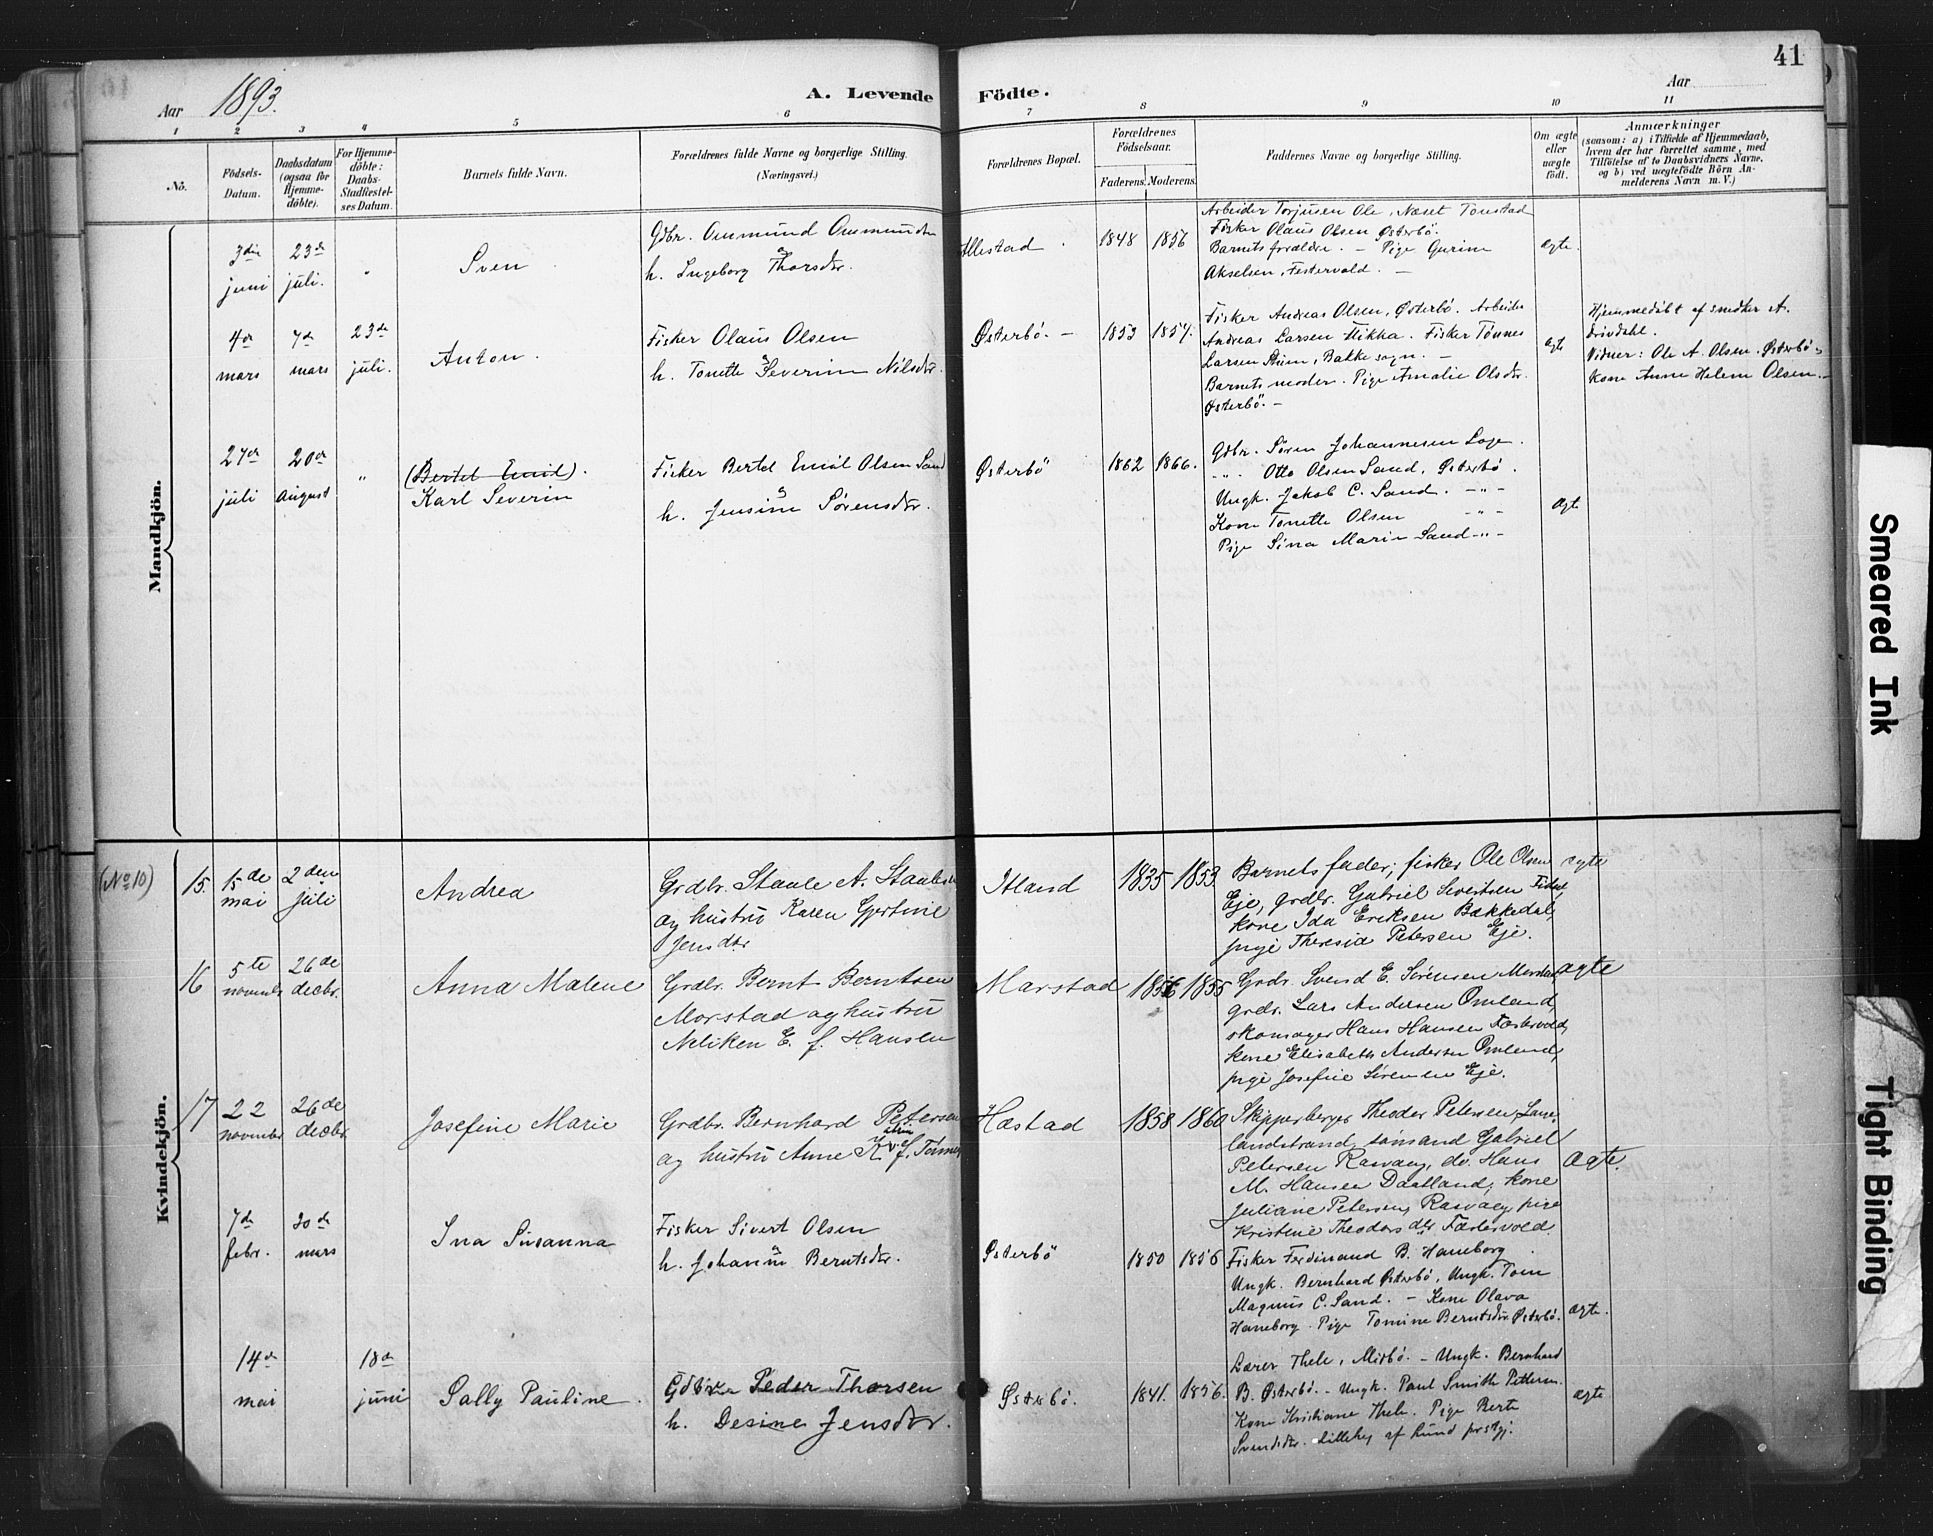 41
Aar 1893.
A. Levende Födte.
Aar
1 2 3 4 5 6 7 8 9 10 11
No.
Födsels-Datum.
Daabsdatum (ogsaa for Hjemme-döbte).
For Hjemme-döbte: Daabs-Stadfæstel-ses Datum.
Barnets fulde Navn.
Forældrenes fulde Navne og borgerlige Stilling.
(Næringsvei.)
Forældrenes Bopæl.
Forældrenes Födselsaar.
Faderens. Moderens.
Faddernes Navne og borgerlige Stilling.
Om ægte eller uægte födt.
Anmærkninger
(saasom: a) i Tilfælde af Hjemmedaab,
hvem der har forrettet samme, med
Tilföielse af to Daabsvidners Navne,
og b) ved uægtefödte Börn An-
melderens Navn m. V.)
Mandkjön.
3die juni
23de juli.
"
Sven
Gdbr. Ommund Ommundsen
h. Ingeborg Thorsdr.
Allestad
1848 1856
Arbeider Torjusen Ole, Næset Tonstad
Fisker Olaus Olsen Østerbö.
Barnets forældre. — Pige Gurine
Akselsen, Festervold. —
ægte.
4de mars
7de mars
23de juli.
Anton.
Fisker Olaus Olsen
h. Tonette Severine Nilsdr.
Østerbö. —
1853 1854.
Fisker Andreas Olsen, Østerbö. Arbeider
Andreas Larsen Flikka. Fisker Tönnes
Larsen Stum, Bakke sogn. —
Barnets moder. Pige Amalie Olsdr.
Østerbö. —
ægte
Hjemmedöbt af snedker A.
Drivdahl.
Vidner: Ole A. Olsen. Østerbö
Kone Anne Helene Olsen. —
27de juli
20de August
"
(Bertel Emil).
Karl Severin
Fisker Bertel Emil Olsen Sand
h. Jensine Sörensdr.
Østerbö
1862 1866.
Gdbr. Sören Johannesen Loge.
-"- Otto Olsen Sand, Østerbö.
Ungk. Jakob C. Sand. -"-
Kone Tonette Olsen -"-
Pige Sina Marie Sand -"-
ægte
Kvindekjön.
(No 10)
15
15de mai
2den juli
Andrea
Grdbr. Staale A. Staalesen
og hustru Karen Gjertine
Jensdtr
Itland
1835 1853
Barnets fader; fisker Ole Olsen
Eje, grdbr. Gabriel Sivertsen
kone Ida Eriksen Bækkedal,
pige Theresia Petersen Eje.
ægte
16
5te november
26de decbr.
Anna Malene
Grdbr. Bernt Berntsen
Morstad og hustru
Neliken E. f. Hansen
Marstad
1856 1855
Grdr. Svend E. Sörensen Marstad,
grdr. Lars Andersen Omland,
skomager Hans Hansen Fæstervold,
kone Elisabeth Andersen Omland,
pige Josefine Sörensen Eje.
ægte
17
22 november
26de decbr.
Josefine Marie
Grdbr. Bernhard Petersen
og hustru Anne Katrine f. Tönnes
Hæstad
1858 1860
Skipperborger Theodor Petersen, Lane
landstrand, sömand Gabriel
Petersen Rasvaag, do. Hans
M. Hansen Daatland, kone
Juliane Petersen, Rasvaag, pige
Kristine Theodorsdtr Fæstervold
ægte.
7de febr.
30de mars
Ina Susanna
Fisker Sivert Olsen
h. Johanne Berntsdr.
Østerbö
1850 1856
Fisker Ferdinand B. Haneborg.
Ungk. Bernhard Østerbö, Ungk. Tom
Magnus C. Sand. — Kone Olava
Haneborg. Pige Tomine Berntsdr Østerbö.
ægte.
14de mai
18de juni
Sally Pauline.
Peder Thorsen
h. Desine Jensdtr.
Østerbö.
1841. 1856.
Lærer Thele, Midbö. — Ungk. Bernhard
B. Østerbö. — Ungk. Paul Smith Pettersen.
Kone Kristiane Thele. Pige Berte
Svendsdr.
ægte
Smeared Ink
Tight Binding